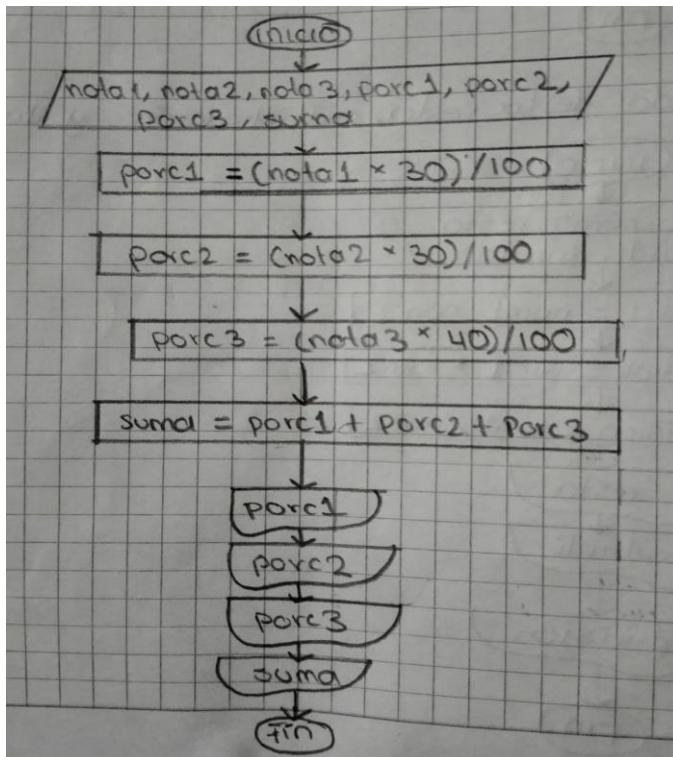 inicio
nota1, nota2, nota3, porc1, porc2,
porc3, suma
porc1 = (nota1 * 30)/100
porc2 = (nota2 * 30)/100
porc3 = (nota3 * 40)/100
suma = porc1 + porc2 + porc3
porc1
porc2
porc3
suma
Fin